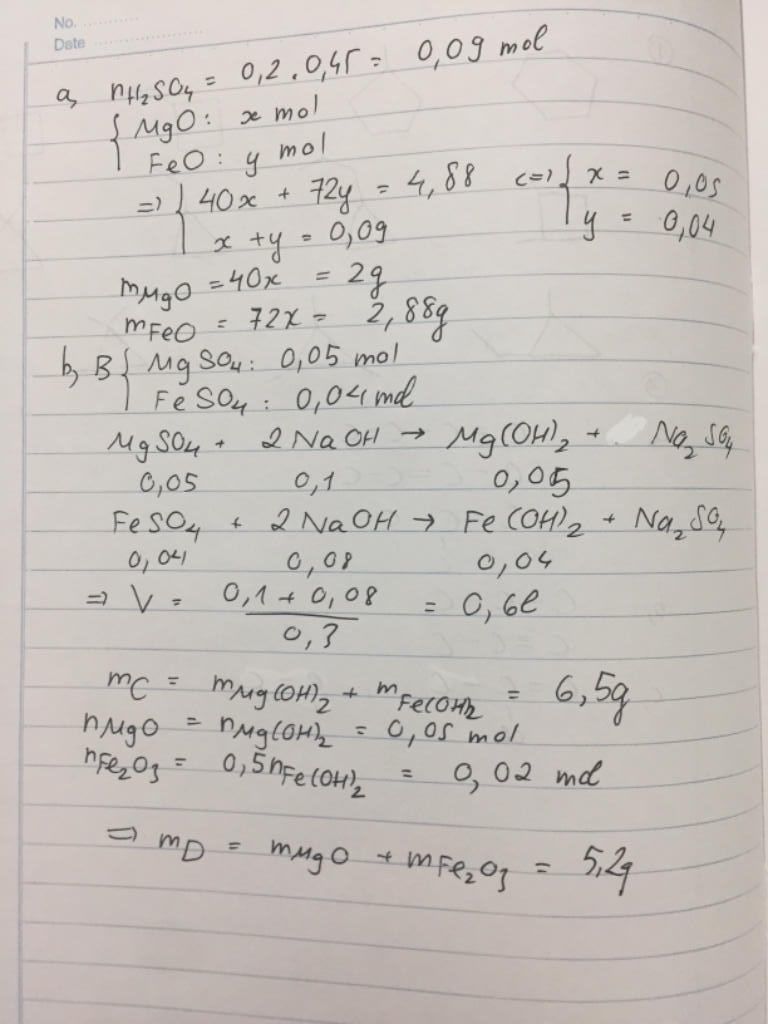 No. ............
Date ..................
a, nH₂SO₄ = 0,2 . 0,45 = 0,09 mol
{ MgO : x mol
FeO : y mol
=> { 40x + 72y = 4,88 <=> { x = 0,05
x + y = 0,09 y = 0,04
mMgO = 40x = 2g
mFeO = 72x = 2,88g
b, B { MgSO₄ : 0,05 mol
FeSO₄ : 0,04 mol
MgSO₄ + 2NaOH → Mg(OH)₂ + Na₂SO₄
0,05 0,1 0,05
FeSO₄ + 2NaOH → Fe(OH)₂ + Na₂SO₄
0,04 0,08 0,04
=> V = (0,1 + 0,08)/0,3 = 0,6l
mC = mMg(OH)₂ + mFe(OH)₂ = 6,5g
nMgO = nMg(OH)₂ = 0,05 mol
nFe₂O₃ = 0,5nFe(OH)₂ = 0,02 mol
=> mD = mMgO + mFe₂O₃ = 5,2g